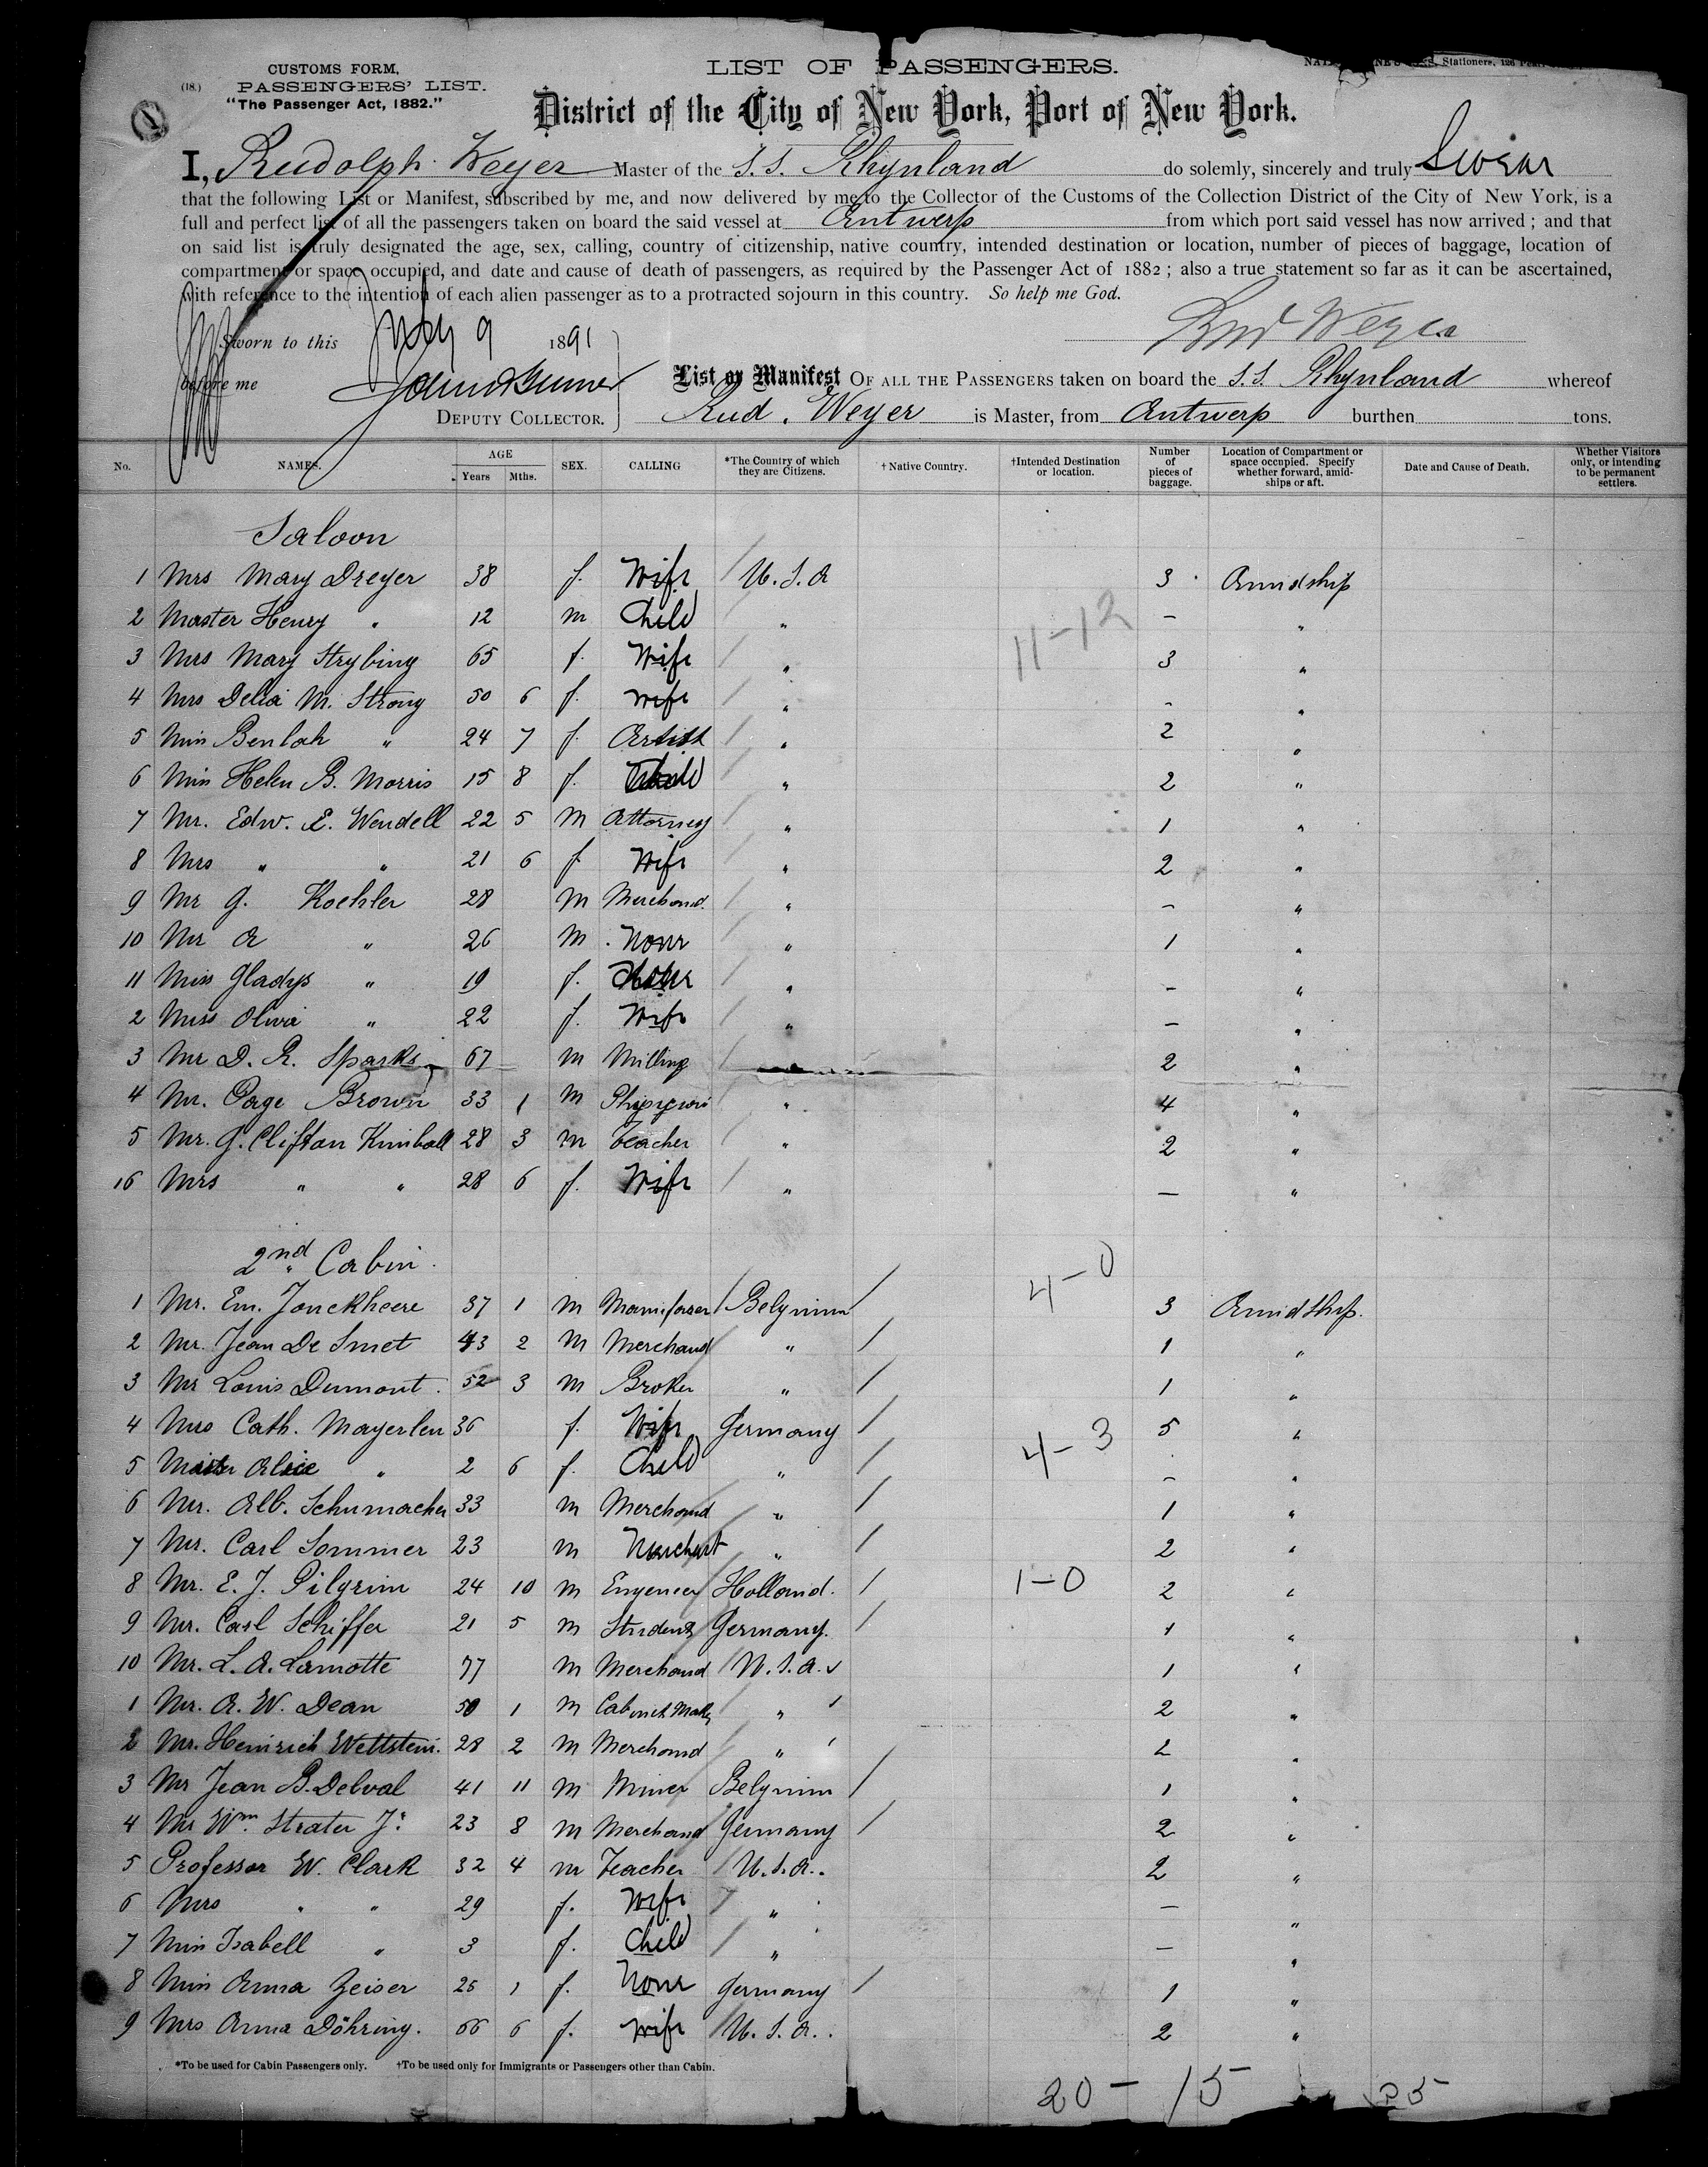 (18.)
CUSTOMS FORM,
PASSENGERS' LIST.
"The Passenger Act, 1882."
LIST OF PASSENGERS.
Stationers, 126
District of the City of New York, Port of New York.
I, Rudolph Weyer Master of the S.S. Rhynland do solemly, sincerely and truly Swear
that the following List or Manifest, subscribed by me, and now delivered by me to the Collector of the Customs of the Collection District of the City of New York, is a
full and perfect list of all the passengers taken on board the said vessel at Antwerp from which port said vessel has now arrived; and that
on said list is truly designated the age, sex, calling, country of citizenship, native country, intended destination or location, number of pieces of baggage, location of
compartment or space occupied, and date and cause of death of passengers, as required by the Passenger Act of 1882; also a true statement so far as it can be ascertained,
with reference to the intention of each alien passenger as to a protracted sojourn in this country. So help me God.
Rud Weyer
Sworn to this July 9 1891
before me
DEPUTY COLLECTOR.
List or Manifest OF ALL THE PASSENGERS taken on board the S.S. Rhynland whereof
Rud. Weyer is Master, from Antwerp burthen tons.
No. NAMES. AGE Years Mths. SEX. CALLING *The Country of which they are Citizens. †Native Country. †Intended Destination or location. Number of pieces of baggage. Location of Compartment or space occupied. Specify whether forward, amidships or aft. Date and Cause of Death. Whether Visitors only, or intending to be permanent settlers.
Saloon
1 Mrs Mary Dreyer 38 f. Wife / U.S.A 3 Amidship
2 Master Henry " 12 m Child / " – "
11-12
3 Mrs Mary Strybing 65 f. Wife / " 3 "
4 Mrs Delia M. Strong 50 6 f. wife / " - "
5 Miss Beulah " 24 7 f. Artist / " 2 "
6 Miss Helen B. Morris 15 8 f. Child / " 2 "
7 Mr. Edw. E. Wendell 22 5 M Attorney / " 1 "
8 Mrs " " 21 6 f Wife / " 2 "
9 Mr G. Koehler 28 M Merchand. / " – "
10 Mr A " 26 M. None / " 1 "
11 Miss Gladys " 19 f. / " - "
2 Miss Oliva " 22 f. Wife / " – "
3 Mr D. R. Sparks 67 M Milling / 2 "
4 Mr. Page Brown 33 1 M / " 4 "
5 Mr. G. Clifton Kimball 28 3 m teacher / " 2 "
16 Mrs " " 28 6 f. Wife / " — "
2nd Cabin.
4-0
1 Mr. Em. Jonckheere 37 1 M / Belgium / 3 Amidship.
2 Mr. Jean De Smet 43 2 M Merchand " / 1 "
3 Mr Louis Dumont. 52 3 M Broker " / 1 "
4 Mrs Cath. Mayerlen 36 f. Wife Germany / 5 "
4-3
5 Alice " 2 6 f. Child " / – "
6 Mr. Alb. Schumacher 33 m Merchand " / 1 "
7 Mr. Carl Sommer 23 m Merchant " / 2 "
8 Mr. E. J. Pilgrim 24 10 m Engeneer / Holland. / 1-0 2 "
9 Mr. Carl Schiffer 21 5 m Student Germany. / 1 "
10 Mr. L. A. Lamotte 77 M Merchand / U.S.A. 1 "
1 Mr. A. W. Dean 50 1 M Cabinet Maker / " 2 "
2 Mr. Heinrich Wettstein. 28 2 M Merchand / " 2 "
3 Mr Jean B. Delval 41 11 m Miner Belgium / 1 "
4 Mr Wm. Strater Jr 23 8 M Merchand Germany / 2 "
5 Professor W. Clark 32 4 m Teacher / U.S.A.. 2 "
6 Mrs " " 29 f. Wife / " – "
7 Miss Isabell " 3 f. Child / " — "
8 Miss Anna Zeiser 25 1 f. None Germany / 1 "
9 Mrs Anna Döhring. 66 6 f. Wife / U.S.A. . 2 "
*To be used for Cabin Passengers only. †To be used only for Immigrants or Passengers other than Cabin.
20 – 15 25